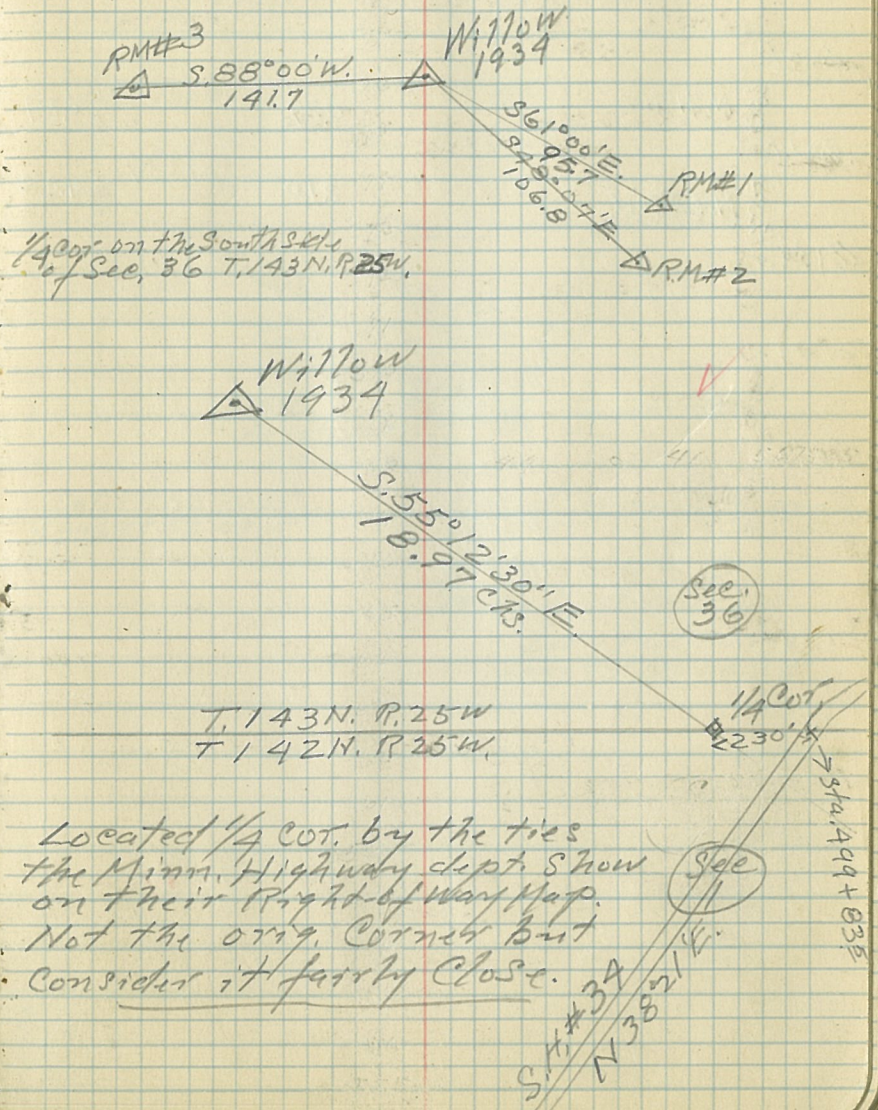 RM#3
S.88°00'W.
141.7
Willow
1934
S61°00'E.
95.7
S48°07'E
106.8
RM#1
RM#2
1/4 Cor on the South side
of Sec, 36 T.143N.R.25W.
Willow
1934
S.55°12'30" E.
18.97 chs.
Sec.
36
1/4 Cor
230'
T.143N. R.25W
T 142N. R 25W.
Sta. 499+835
Located 1/4 Cor. by the ties
the Minn. Highway dept. Show
on their Right-of Way Map.
Not the orig. Corner but
consider it fairly Close.
Sec
1
S.H.#34
N 38°21'E.